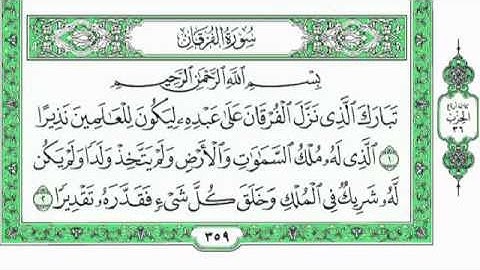 سُورَةُ الفُرْقَانِ
بِسْمِ اللَّهِ الرَّحْمَٰنِ الرَّحِيمِ
تَبَارَكَ الَّذِي نَزَّلَ الْفُرْقَانَ عَلَىٰ عَبْدِهِۦ لِيَكُونَ لِلْعَٰلَمِينَ نَذِيرًا
١ الَّذِي لَهُۥ مُلْكُ السَّمَٰوَٰتِ وَالْأَرْضِ وَلَمْ يَتَّخِذْ وَلَدًا وَلَمْ يَكُن
لَّهُۥ شَرِيكٌ فِي الْمُلْكِ وَخَلَقَ كُلَّ شَيْءٍ فَقَدَّرَهُۥ تَقْدِيرًا ٢
٣٥٩
الحزب
٣٦